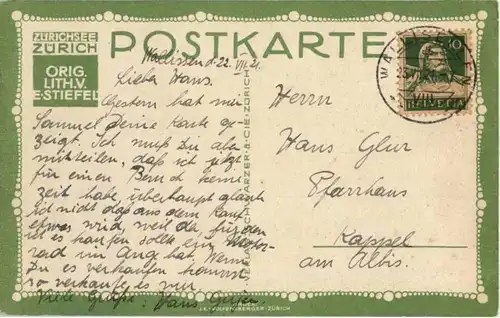 ZÜRICHSEE
ZÜRICH
ORIG.
LITH. V.
E. STIEFEL
POSTKARTE
Wallisellen d. 22. VII. 21.
Lieber Hans.
Gestern hat mir
Samuel Deine Karte ge-
zeigt. Ich muß Dir aber
mitteilen, daß ich jetzt
für einen Besuch keine
Zeit habe, überhaupt glaube
ich nicht daß aus dem Kauf
etwas wird, weil der, für den
ich es kaufen sollte ein Motor-
rad im Aug hat. Wenn
Du es verkaufen kannst
so verkaufe es nur
Viele Grüße. Hans
SCHWARZER & CIE. ZÜRICH
WALLISELLEN
10
HELVETIA
Herrn
Hans Glur
Pfarrhaus
Kappel
am Albis.
J.E. WOLFENSBERGER · ZÜRICH